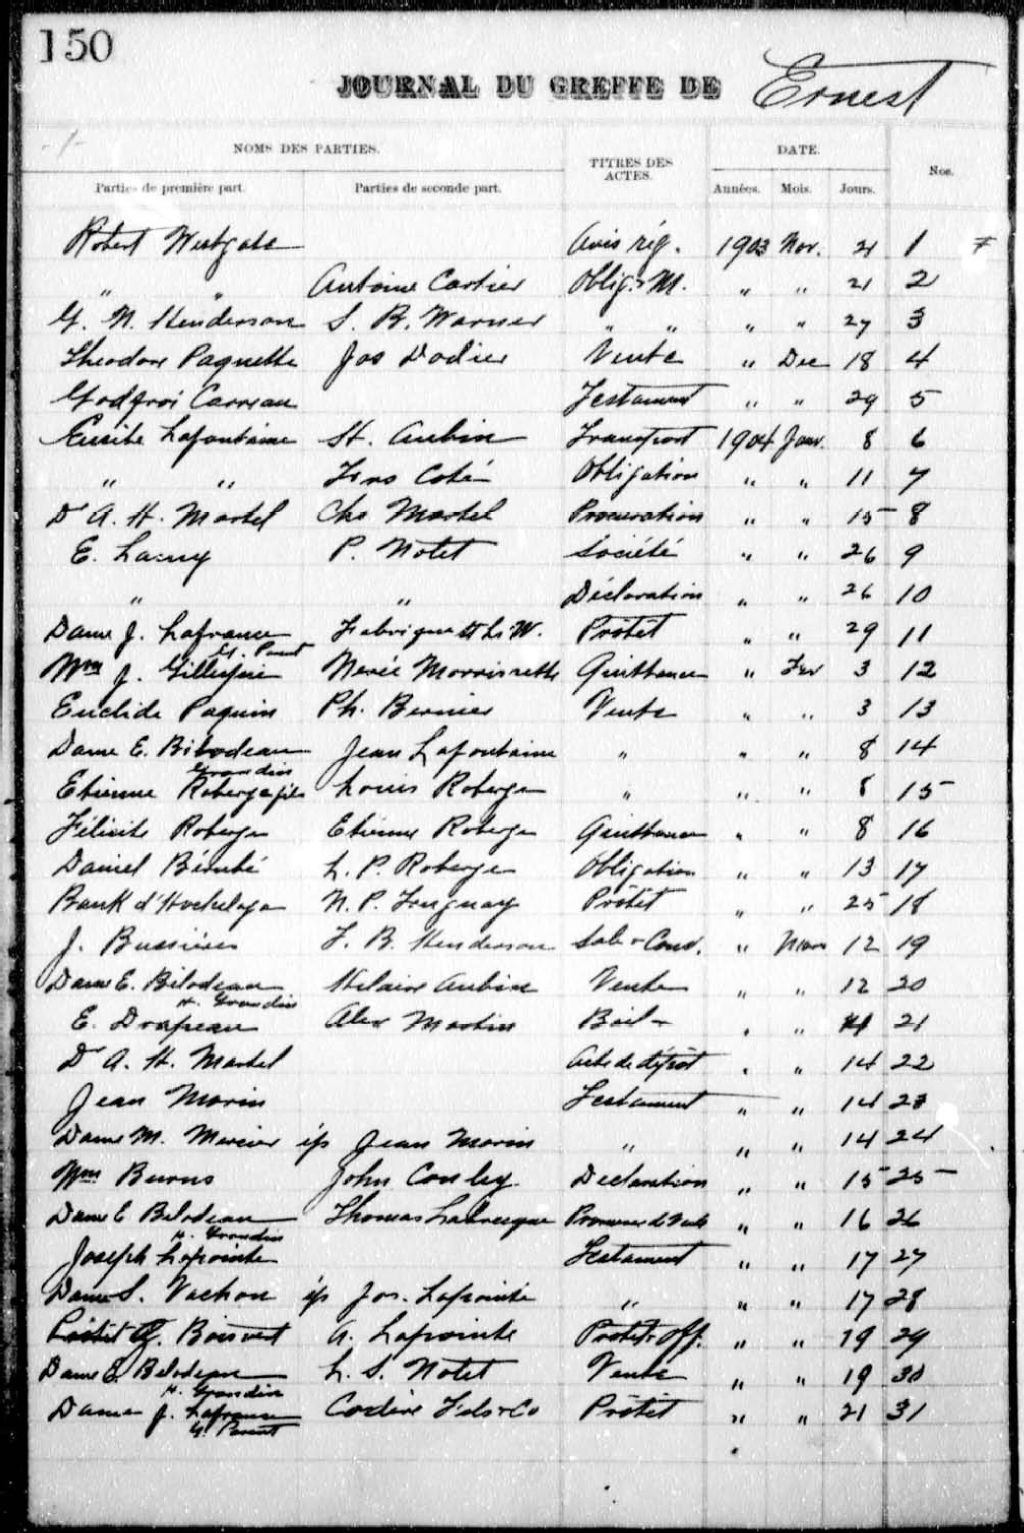 150
JOURNAL DU GREFFE DE Ernest
NOMS DES PARTIES. TITRES DES ACTES. DATE. Nos.
Parties de première part. Parties de seconde part. Années. Mois. Jours.
Robert Westgate Avis rég. 1903 Nov. 21 1
" " Antoine Cartier Oblig. & M. " " 21 2
G. N. Henderson S. R. Warner " " " " 27 3
Theodore Paquette Jos Dodier Vente " Dec 18 4
Godfroi Carreau Testament " " 29 5
Lafontaine St. Aubin Transport 1904 Janv. 8 6
" " Frs Coté Obligation " " 11 7
Dr A. H. Martel Chs Martel Procuration " " 15 8
E. P. Notet Société " " 26 9
" " Déclaration " " 26 10
Dame J. Lafrance Fabrique St W. Protêt " " 29 11
G. Parent
Wm J. Gillespie Nerée Morrissette Quittance " Fev 3 12
Euclide Paquin Ph. Bernier Vente " " 3 13
Dame E. Bilodeau Jean Lafontaine " " " 8 14
Grondin
Etienne Roberge fils Louis Roberge " " " 8 15
Félicité Roberge Etienne Roberge Quittance " " 8 16
Daniel Bérubé L. P. Roberge Obligation " " 13 17
Bank d'Hochelaga N. P. Tanguay Protêt " " 25 18
J. Bussières F. B. Henderson Sale & Cond. " Mars 12 19
Dame E. Bilodeau Hilaire Aubin Vente " " 12 20
H. Grondin
E. Drapeau Alex Martin Bail " " 14 21
Dr A. H. Martel Acte de dépôt " " 14 22
Jean Morin Testament " " 14 23
Dame M. Mercier ép Jean Morin " " " 14 24
Wm Burns John Conley Déclaration " " 15 25
Dame E Bilodeau Thomas Labrecque Promesse de Vente " " 16 26
H. Grondin
Joseph Lapointe Testament " " 17 27
Dame S. Vachon ép Jos. Lapointe " " " 17 28
G. Boisvert A. Lapointe Protêt & off. " " 19 29
Dame E. Bilodeau L. S. Notet Vente " " 19 30
H. Grondin
Dame J. Lafrance Fils & Co Protêt " " 21 31
G. Parent